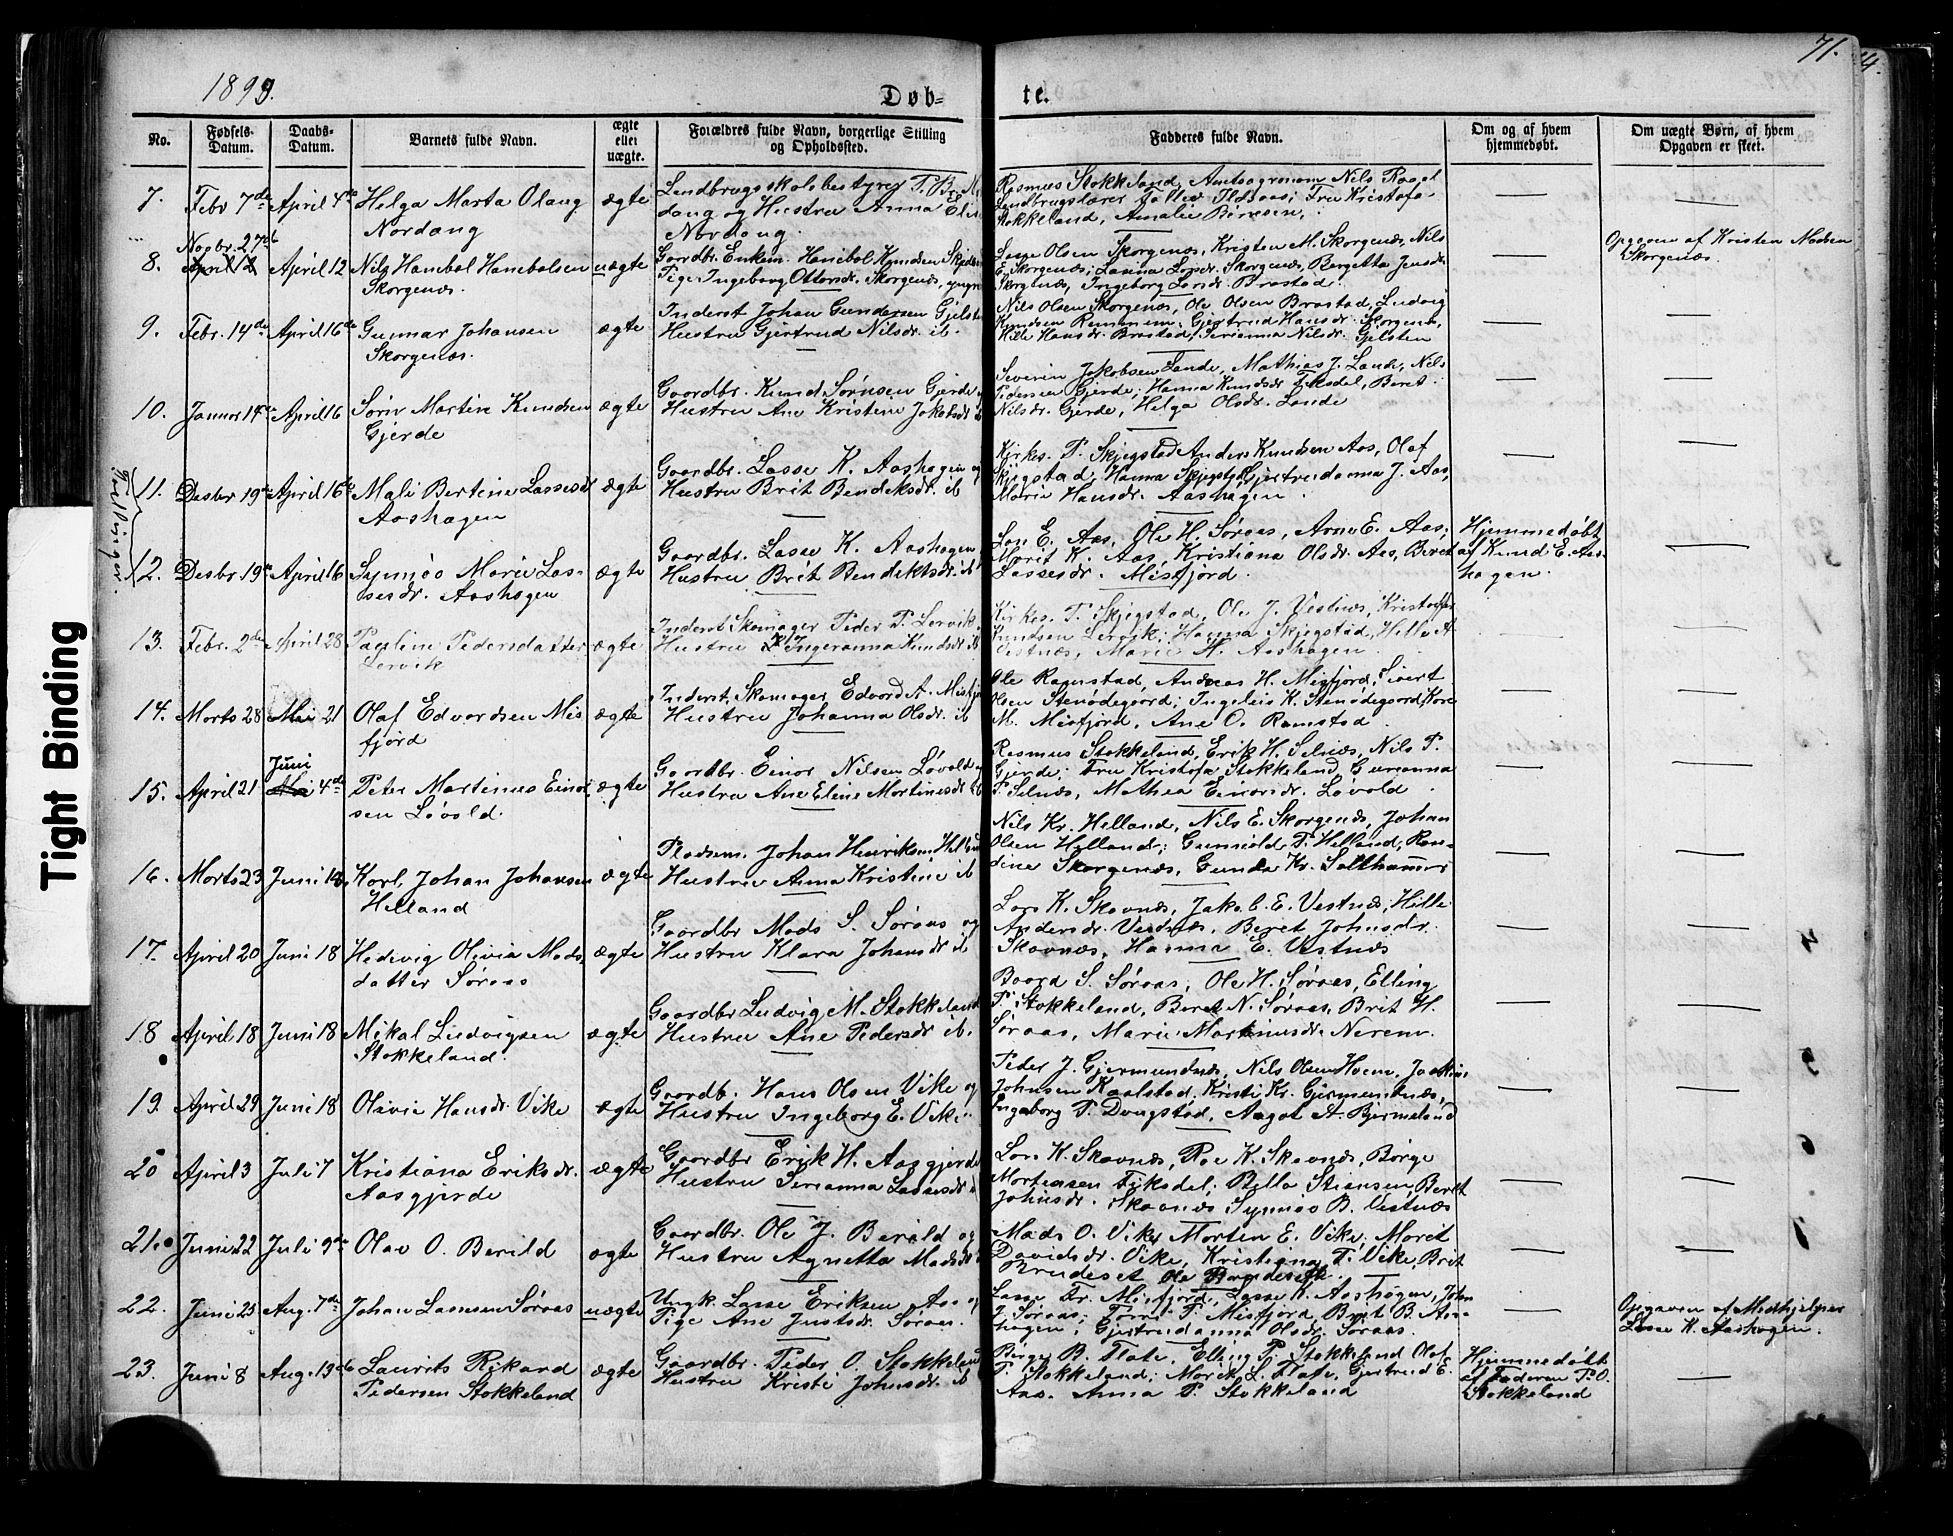 71.
1899.
Døb-
te.
No.
Fødsels-
Datum.
Daabs-
Datum.
Barnets fulde Navn.
ægte
eller
uægte.
Forældres fulde Navn, borgerlige Stilling
og Opholdssted.
Fadderes fulde Navn.
Om og af hvem
hjemmedøbt.
Om uægte Børn, af hvem
Opgaven er skeet.
7. Febr 7de April 4de Helga Marta Olaug
Nordang
ægte
Landbrugsskolebestyrer
dang og Hustru Anna
Nordang.
Rasmus Stokkeland, Amtsagronom Nils
Fru Kristofa
Stokkeland, Amalie
8. Novbr. 27de
April 12 April 12 Nils Hanibal Hanibalsen
Skorgenæs.
uægte
Gaardbr. Enkem. Hanibal Knudsen
Pige Ingeborg Ottersdr. Skorgenæs,
Lasse Olsen Skorgenæs, Kristen M. Skorgenæs, Nils
E. Skorgenæs; Skorgenæs, Bergetta Jensdr.
Skorgenæs, Ingeborg Larsdr. Brastad.
Opgaven af Kristen Madsen
Skorgenæs.
9. Febr. 14de April 16de Gunnar Johansen
Skorgenæs.
ægte
Inderst Johan Gundersen Gjelsten
Hustru Gjertrud Nilsdr. ib.
Nils Olsen Skorgenæs, Ole Olsen Brastad, Ludvig
Knudsen Remmem; Gjertrud Hansdr. Skorgenæs,
Hilde Hansdr. Brastad, Serianna Nilsdr. Gjelsten
10. Januar 14de April 16 Søren Martin Knudsen
Gjerde
ægte
Gaardbr. Knud Sørnsen Gjerde
Hustru Ane Kristine Jakobsdr
Severin Jakobsen Lande, Mathias J. Lande, Nils
Pedersen Gjerde; Hanna Knudsdr. Fiksdal, Beret
Nilsdr. Gjerde, Helga Olsdr. Lande
Tvillinger.
11. Desbr 19de April 16de Mali Bertine Lassesdr
Aashagen
ægte
Gaardbr. Lasse K. Aashagen og
Hustru Brit Bendiksdr. ib
Kirkes. P. Skjegstad Anders Knudsen Aas, Olaf
Skjegstad, Hanna Skjegstad, Gjertrudanna J. Aas,
Marie Hansdr. Aashagen.
12. Desbr. 19de April 16 Synnøs Marie Las-
sesdr. Aashagen
ægte
Gaardbr. Lasse K. Aashagen
Hustru Brit Bendiktsdr. ib
E. Aas, Ole H. Søraas, Arne E. Aas;
Marit K. Aas, Kristiana Olsdr. Aas, Beret
Lassesdr. Misfjord.
Hjemmedøbt
af Knud E. Aas-
hagen.
13. Febr. 2de April 28 Pauline Pedersdatter
Lervik
ægte
Inderst Skomager Peder P. Lervik
Hustru Ingeranna Knudsdr ib
Kirkes. P. Skjegstad, Ole J. Vestnæs, Kristoffer
Knudsen Lervik; Hanna Skjegstad, Hille A.
Vestnæs, Marie H. Aashagen.
14. Marts 28 Mai 21 Olaf Edvardsen Mis
fjord
ægte
Inderst, Skomager Edvard A. Misfj
Hustru Johanna Olsdr. ib
Ole Ramstad, Andreas H. Misfjord, Sivert
Olsen Stenødegaard; Ingeleis K. Stenødegaard, Kare
M. Misfjord, Ane O. Ramstad.
15. April 21 Juni
Mai 4de Peter Martinus Einar
sen Løvold.
ægte
Gaardbr. Einar Nilsen Løvold
Hustru Ane Eline Martinusdr ib
Rasmus Stokkeland, Erik H. Selnæs, Nils P.
Gjerde; Fru Kristofa Stokkeland, Gurianna
P. Selnæs, Mathea Einarsdr. Løvold.
16. Marts 23 Juni 18 Karl Johan Johansen
Helland
ægte
Pladsem. Johan Henriksen, Helland
Hustru Anna Kristine ib
Nils Kr. Helland, Nils E. Skorgenæs, Johan
Olsen Helland; Gunnild P. Helland, Ran-
dine Skorgenæs, Gunda Kr. Salthammer
17. April 20 Juni 18 Hedevig Olivia Mads-
datter Søraas
ægte
Gaardbr Mads S. Søraas og
Hustru Klara Johansdr ib
Lars K. Skavnæs, Jakob E. Vestnæs, Hille
Andersdr. Vestnæs, Beret Johnsdr.
Skavnæs, Hanna E. Vestnæs
18 April 18 Juni 18 Mikal Ludvigsen
Stokkeland.
ægte
Gaardbr Ludvig M. Stokkeland
Hustru Ane Pedersdr ib.
Baard S. Søraas, Ole H. Søraas, Elling
P. Stokkeland, Beret N. Søraas, Brit H.
Søraas, Marie Martinusdr. Nerem.
19. April 29 Juni 18 Olivie Hansdr. Vike
ægte
Gaardb. Hans Olsen Vike og
Hustru Ingeborg E. Vike
Peder J. Gjermundnæs, Nils Olsen Hoem, Joakim
Johnsen Kaalstad, Kristi Kr. Gjermundnæs,
Ingeborg P. Daugstad, Aagot A. Bjermeland
20 April 3 Juli 7 Kristiana Eriksdr.
Aasgjerde
ægte
Gaardbr Erik H. Aasgjerde
Hustru Serianna Lassesdr
Lars K. Skavnæs, Roe K. Skavnæs, Børge
Mortensen Fiksdal; Pella Stiansen, Beret
Johnsdr. Skavnæs Synnøs B. Vestnæs
21. Juni 22 Juli 9de Olav O. Berild
ægte
Gaardbr. Ole J. Berild og
Hustru Agnetta Madsdr
Mads O. Vike, Morten E. Vike; Marit
Davidsdr. Vike, Kristiana T. Vike, Brit
Brudeset Ole Brudeseth.
22. Juni 23 Aug. 7de Johan Lassesen Søraas
uægte
Ungk. Lasse Eriksen Aas og
Pige Ane Justsdr. Søraas.
Lasse Tr. Misfjord, Lasse K. Aashagen, John
J. Søraas; P. Misfjord, Brit B. Aas-
hagen; Gjertrudanna Olsdr. Søraas.
Opgaven af Medhjelper
Lasse K. Aashagen.
23. Juni 8 Aug. 13de Laurits Rikard
Pedersen Stokkeland
ægte
Gaardbr. Peder O. Stokkeland
Hustru Kristi Johnsdr. ib
Børge B. Flate, Elling P. Stokkeland Olaf
P. Stokkeland; Marit L. Flate, Gjertrud E.
Aas. Anna P. Stokkeland
Hjemmedøbt
af Faderen P. O.
Stokkeland
Tight Binding